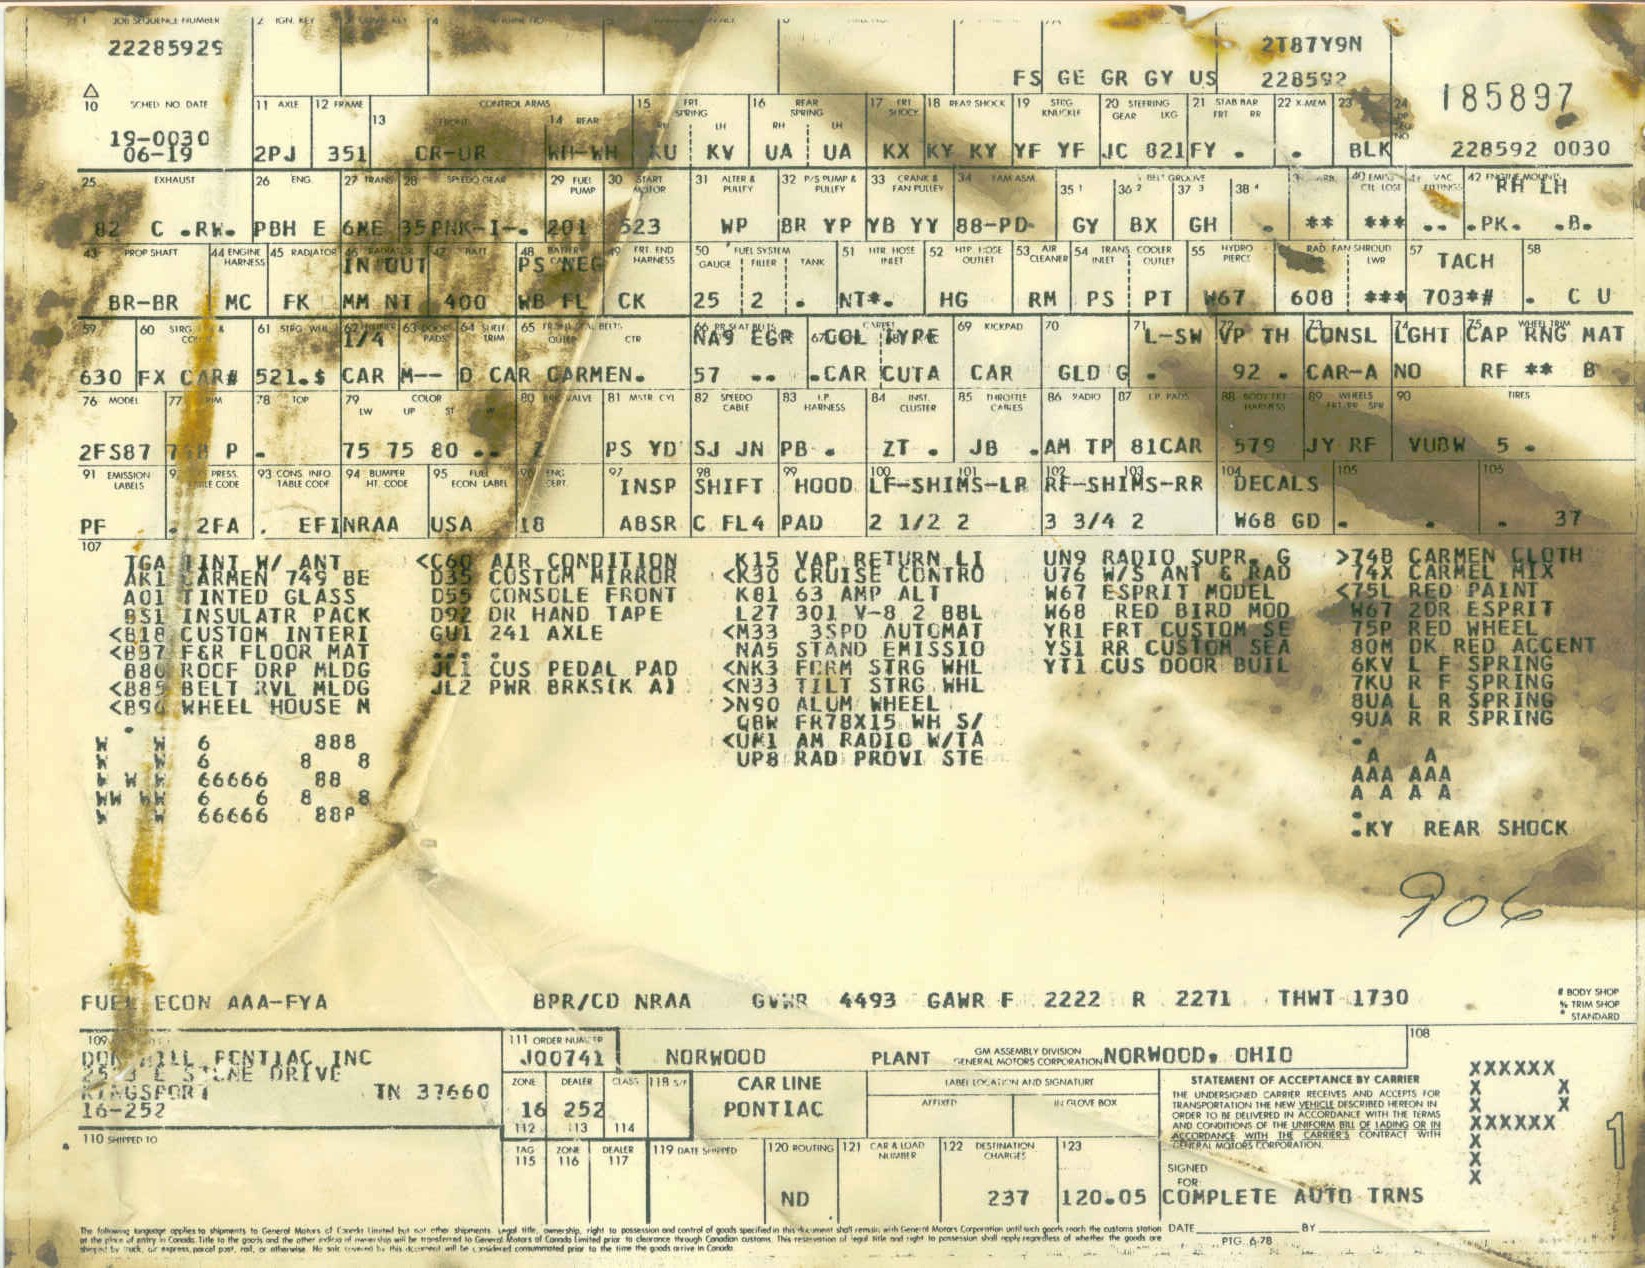 JOB SEQUENCE NUMBER 2 IGN. KEY
22285929 2T87Y9N
FS GE GR GY US 228592 185897
10 SCHED NO. DATE 11 AXLE 12 FRAME 13 CONTROL ARMS FRONT 14 REAR 15 FRT. SPRING RH LH 16 REAR SPRING RH LH 17 FRT SHOCK 18 REAR SHOCK 19 STRG KNUCKLE 20 STEERING GEAR LKG 21 STAB BAR FRT RR 22 X-MEM 23 24
19-0030
06-19 2PJ 351 CR-UR WH-WH KU KV UA UA KX KY KY YF YF JC 821 FY . . BLK 228592 0030
25 EXHAUST 26 ENG. 27 TRANS 28 SPEEDO GEAR 29 FUEL PUMP 30 START MOTOR 31 ALTER & PULLEY 32 P/S PUMP & PULLEY 33 CRANK & FAN PULLEY 34 FAN ASM. BELT GROOVE 35 1 36 2 37 3 38 4 40 EMISS CTL HOSE 41 VAC FITTINGS 42 ENGINE MOUNTS RH LH
82 C .RW. PBH E 6ME 35PNK-I-. 201 523 WP BR YP YB YY 88-PD. GY BX GH . ** *** .. .PK. .B.
43 PROP SHAFT 44 ENGINE HARNESS 45 RADIATOR 46 RADIATOR IN OUT 47 BATT 48 BATTERY PS NEG 49 FRT. END HARNESS 50 FUEL SYSTEM GAUGE FILLER TANK 51 HTR. HOSE INLET 52 HTR. HOSE OUTLET 53 AIR CLEANER 54 TRANS. COOLER INLET OUTLET 55 HYDRO PIERCE 56 RAD. FAN SHROUD LWR 57 TACH 58
BR-BR MC FK MM NT 400 WB FL CK 25 2 . NT*. HG RM PS PT W67 608 *** 703*# . C U
59 60 STRG 61 STRG WHL 62 1/4 63 DOOR PADS 64 SHELF TRIM 65 BELTS OUTER CTR 66 RR SEAT BELTS NA9 EGR 67 COL TYPE 69 KICKPAD 70 71 L-SW 72 VP TH 73 CONSL 74 LGHT 75 WHEEL TRIM CAP RNG MAT
630 FX CAR# 521.$ CAR M-- D CAR CARMEN. 57 .. .CAR CUTA CAR GLD G . 92 . CAR-A NO RF ** B
76 MODEL 77 TRIM 78 TOP 79 COLOR LW UP ST 80 VALVE 81 MSTR CYL 82 SPEEDO CABLE 83 I.P. HARNESS 84 INST. CLUSTER 85 THROTTLE CABLES 86 RADIO 87 I.P. PADS 88 BODY FRT HARNESS 89 WHEELS FRT RR SPR 90 TIRES
2FS87 74B P . 75 75 80 .. Z PS YD SJ JN PB . ZT . JB .AM TP 81CAR 579 JY RF VUBW 5 .
91 EMISSION LABELS PRESS. TABLE CODE 93 CONS. INFO TABLE CODE 94 BUMPER HT. CODE 95 FUEL ECON LABEL 96 ENG CERT. 97 INSP 98 SHIFT 99 HOOD 100 LF-SHIMS-LR 101 102 RF-SHIMS-RR 103 104 DECALS 105 106
PF . 2FA . EFINRAA USA 18 ABSR C FL4 PAD 2 1/2 2 3 3/4 2 W68 GD . . . 37
107
TGA INT W/ ANT <C60 AIR CONDITION K15 VAP RETURN LI UN9 RADIO SUPR. G >74B CARMEN CLOTH
AK1 CARMEN 749 BE D35 CUSTOM MIRROR <K30 CRUISE CONTRO U76 W/S ANT & RAD 74X CARMEL MIX
A01 TINTED GLASS D55 CONSOLE FRONT K81 63 AMP ALT W67 ESPRIT MODEL <75L RED PAINT
BS1 INSULATR PACK D92 DR HAND TAPE L27 301 V-8 2 BBL W68 RED BIRD MOD W67 2DR ESPRIT
<B18 CUSTOM INTERI GU1 241 AXLE <M33 3SPD AUTOMAT YR1 FRT CUSTOM SE 75P RED WHEEL
<B37 F&R FLOOR MAT NA5 STAND EMISSIO YS1 RR CUSTOM SEA 80M DK RED ACCENT
B80 ROOF DRP MLDG JL1 CUS PEDAL PAD <NK3 FORM STRG WHL YT1 CUS DOOR BUIL 6KV L F SPRING
<B85 BELT RVL MLDG JL2 PWR BRKS(K A) <N33 TILT STRG WHL 7KU R F SPRING
<B96 WHEEL HOUSE M >N90 ALUM WHEEL 8UA L R SPRING
QBW FR78X15 WH S/ 9UA R R SPRING
<UM1 AM RADIO W/TA
UP8 RAD PROVI STE
W W 6 888
W W 6 8 8
W W W 66666 88
WW WW 6 6 8 8
W W 66666 888
A A
AAA AAA
A A A A
.KY REAR SHOCK
906
FUEL ECON AAA-FYA BPR/CD NRAA GVWR 4493 GAWR F 2222 R 2271 THWT 1730
# BODY SHOP
% TRIM SHOP
* STANDARD
109 111 ORDER NUMBER 108
DON HILL PONTIAC INC J00741 NORWOOD PLANT GM ASSEMBLY DIVISION GENERAL MOTORS CORPORATION NORWOOD, OHIO
E STONE DRIVE
KINGSPORT TN 37660
16-252
ZONE DEALER CLASS 118 S/F CAR LINE LABEL LOCATION AND SIGNATURE
16 252 PONTIAC AFFIXED IN GLOVE BOX
112 113 114
STATEMENT OF ACCEPTANCE BY CARRIER
THE UNDERSIGNED CARRIER RECEIVES AND ACCEPTS FOR
TRANSPORTATION THE NEW VEHICLE DESCRIBED HEREON IN
ORDER TO BE DELIVERED IN ACCORDANCE WITH THE TERMS
AND CONDITIONS OF THE UNIFORM BILL OF LADING OR IN
ACCORDANCE WITH THE CARRIER'S CONTRACT WITH
GENERAL MOTORS CORPORATION.
XXXXXX
X X
X X
XXXXXX
X
X
X
1
110 SHIPPED TO
TAG 115 ZONE 116 DEALER 117 119 DATE SHIPPED 120 ROUTING 121 CAR & LOAD NUMBER 122 DESTINATION CHARGES 123
SIGNED
FOR:
ND 237 120.05 COMPLETE AUTO TRNS
DATE BY
PTG. 6-78
The following language applies to shipments to General Motors of Canada Limited but not other shipments. Legal title, ownership, right to possession and control of goods specified in this document shall remain with General Motors Corporation until such goods reach the customs station
at the place of entry in Canada. Title to the goods and the other indicia of ownership will be transferred to General Motors of Canada Limited prior to clearance through Canadian customs. This reservation of legal title and right to possession shall apply regardless of whether the goods are
shipped by truck, air express, parcel post, rail, or otherwise. No sale covered by this document will be considered consummated prior to the time the goods arrive in Canada.